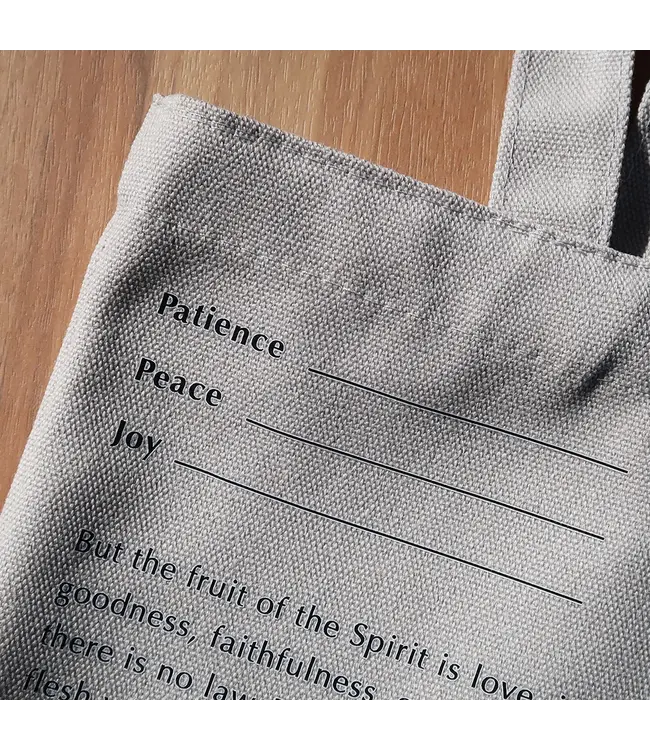 Patience
Peace
Joy
But the fruit of the Spirit is love,
goodness, faithfulness,
there is no law
flesh